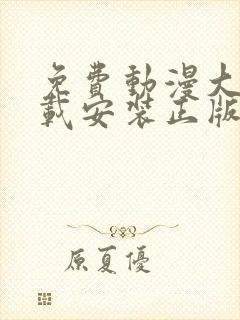 免費動漫大
載安裝正版
原夏優